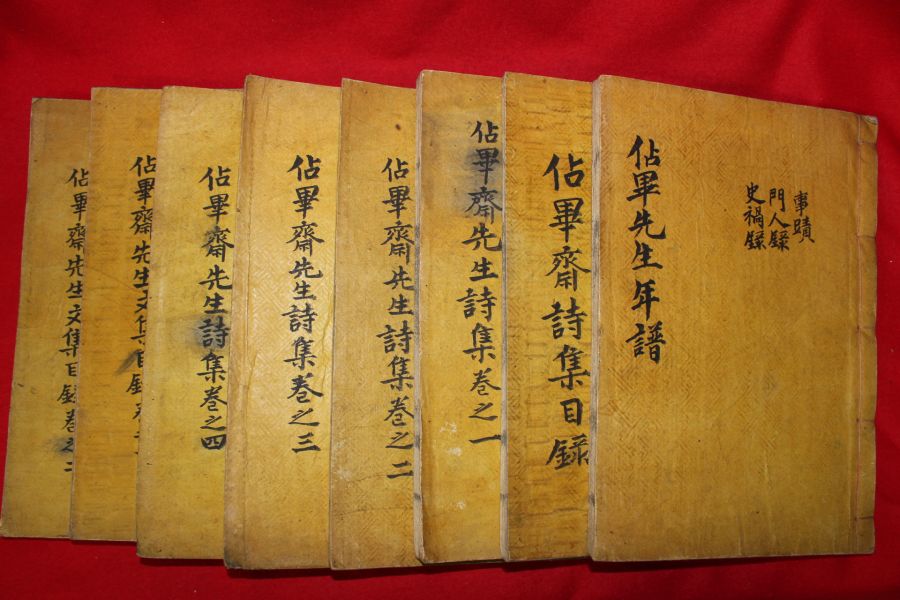 事蹟
門人録
史禍録
佔畢先生年譜
佔畢齋詩集目錄
佔畢齋先生詩集巻之一
佔畢齋先生詩集巻之二
佔畢齋先生詩集巻之三
佔畢齋先生詩集巻之四
佔畢齋先生文集目録
佔畢齋先生文集目録巻之二